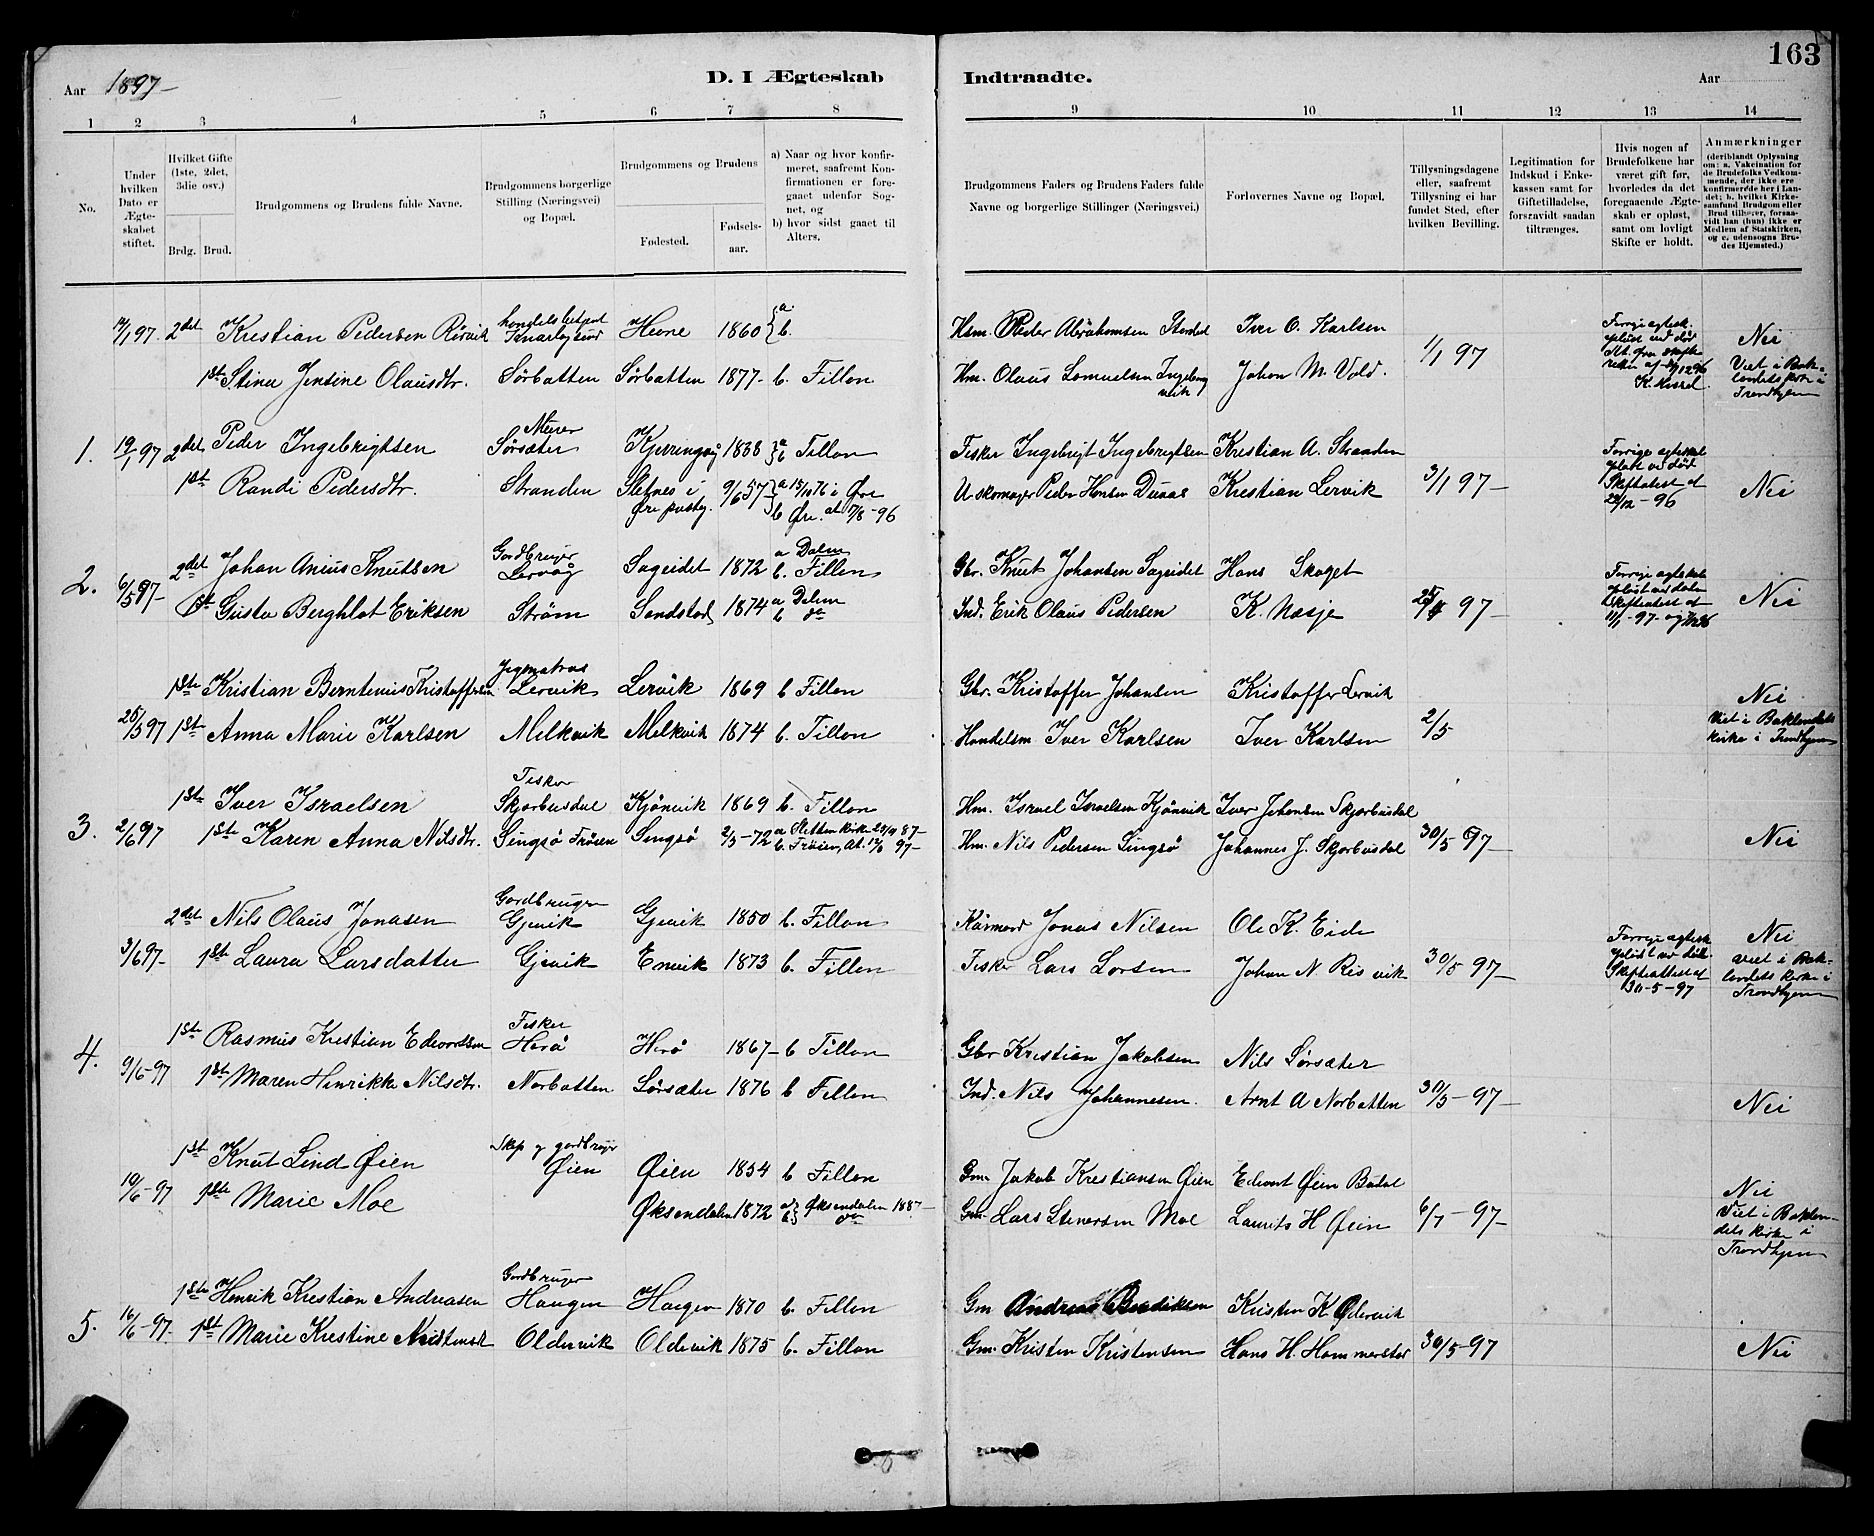 163
Aar 1897-
D. I Ægteskab Indtraadte.
Aar
1 2 3 4 5 6 7 8 9 10 11 12 13 14
No.
Under hvilken Dato er Ægteskabet stiftet.
Hvilket Gifte (1ste, 2det, 3die osv.)
Brdg. Brud.
Brudgommens og Brudens fulde Navne.
Brudgommens borgerlige Stilling (Næringsvei) og Bopæl.
Brudgommens og Brudens
Fødested.
Fødselsaar.
a) Naar og hvor konfirmeret, saafremt Konfirmationen er foregaaet udenfor Sognet, og
b) hvor sidst gaaet til Alters.
Brudgommens Faders og Brudens Faders fulde Navne og borgerlige Stillinger (Næringsvei.)
Forlovernes Navne og Bopæl.
Tillysningsdagene eller, saafremt Tillysning ei har fundet Sted, efter hvilken Bevilling.
Legitimation for Indskud i Enkekassen samt for Giftetilladelse, forsaavidt saadan tiltrænges.
Hvis nogen af Brudefolkene har været gift før, hvorledes da det foregaaende Ægteskab er opløst, samt om lovligt Skifte er holdt.
Anmærkninger
(deriblandt Oplysning om: a. Vakcination for de Brudefolks Vedkommende, der ikke ere konfirmerede her i Landet; b. hvilket Kirkesamfund Brudgom eller Brud tilhører, forsaavidt han (hun) ikke er Medlem af Statskirken, og c. udensogns Brudes Hjemsted.)
14/1 97. 2det Kristian Pedersen Rørvik Hevne 1860 a. b. Hsm. Peder Abrahamsen Iver O. Karlsen Nei
1ste Stina Jentine Olausdtr. Sörbatten Sörbatten 1877- b. Fillan Hm. Olaus Samuelsen Ingeborgvik Johan M. Vold. 1/1 97 Forrige ægtesk. opløst ved død Viet i Baklandets kirke i Trondhjem
1. 19/1 97 2det Peder Ingebrigtsen Sørsæter Kjerringvåg 1838 a b Fillan Fisker Ingebrigt Ingebrigtsen Kristian A. Stranden
1ste Randi Pedersdtr. Stranden Stefnes i Øre præstg. 9/6 57 a 15/10 76 i Øre b Øre. at 7/8-96 Skomager Peder Hansen Kristian Lervik 3/1 97- Forrige ægteskab opløst ved død Skifteatest af 29/12-96 Nei
2. 6/5 97- 2det Johan Anius Knutsen Gardbruger Lervåg Sageidet 1872 a Dalen b. Fillan Gbr. Knut Johansen Sageidet Hans Skaget
1ste Gusta Berghlot Eriksen Strøm Sandstad 1874 a Dalen b do Ind. Erik Olaus Pedersen K. Næsje 25/4 97- Forrige ægteskab opløst ved døden Skifteatest af 11/1-97 Nei
1ste Kristian Berntinus Kristoffersen Jagtmatros Lervik Lervik 1869 b Fillan Gbr. Kristoffer Johansen Kristoffer Lervik Nei
25/5 97 1ste Anna Marie Karlsen Melkvik Melkvik 1874 b. Fillan Handelsm Iver Karlsen Iver Karlsen 2/5 Viet i Baklandets kirke i Trondhjem
3. 2/6 97 1ste Iver Israelsen Fisker Skjærbusdal Kjönvik 1869 b. Fillan Hm. Israel Israelsen Kjönvik Iver Johansen Skjærbusdal
1ste Karen Anna Nilsdtr. Singsö Fröien Singsö 2/5-72 a Sletten kirke 87- b. Fröien. At. 97- Hm. Nils Pedersen Singsø Johannes J. Skjærbusdal 30/5 97- Nei
2det Nils Olaus Jonasen Gardbruger Gjevik Gjevik 1850 b. Fillan Kårmand Jonas Nilsen Ole K. Eide Nei
3/6 97- 1ste Laura Larsdatter Gjevik Envik 1873 b. Fillan Fisker Lars Larsen Johan N Risvik 30/5 97- Forrige ægtesk opløst ved død. Skifteattest af 30-5-97 Viet i Baklandets kirke i Trondhjem
4. 9/6-97 1ste Rasmus Kristian Edvardsen Fisker Herö Herö 1867- b Fillan Gbr Kristian Jakobsen Nils Sørsæter
1ste Maren Henrikke Nilsdtr. Norbatten Sørsæter 1876 b Fillan Ind. Nils Johannesen. Arnt A Norbatten 30/5-97- Nei
10/6-97 1ste Knut Lind Øien Skip. og gardbruger Øien Øien 1854 b Fillan Gm. Jakob Kristiansen Øien Edvart Øien Nei
1ste Marie Moe Øksendalen 1872 a) Øksendalen 1887- b) do Gm. Lars Stenersen Moe Laurits H Øien 6/7-97- Viet i Baklandets kirke i Trondhjem
5. 16/6-97. 1ste Henrik Kristian Andreasen Gardbruger Haugen Haugen 1870 b. Fillan Gm Andreas Bendiksen Kristen K Oldervik
1ste Marie Kristine Oldervik Oldevik 1875 b. Fillan Gm. Kristen Kristensen Hans H. Hammerstad 30/5-97 Nei